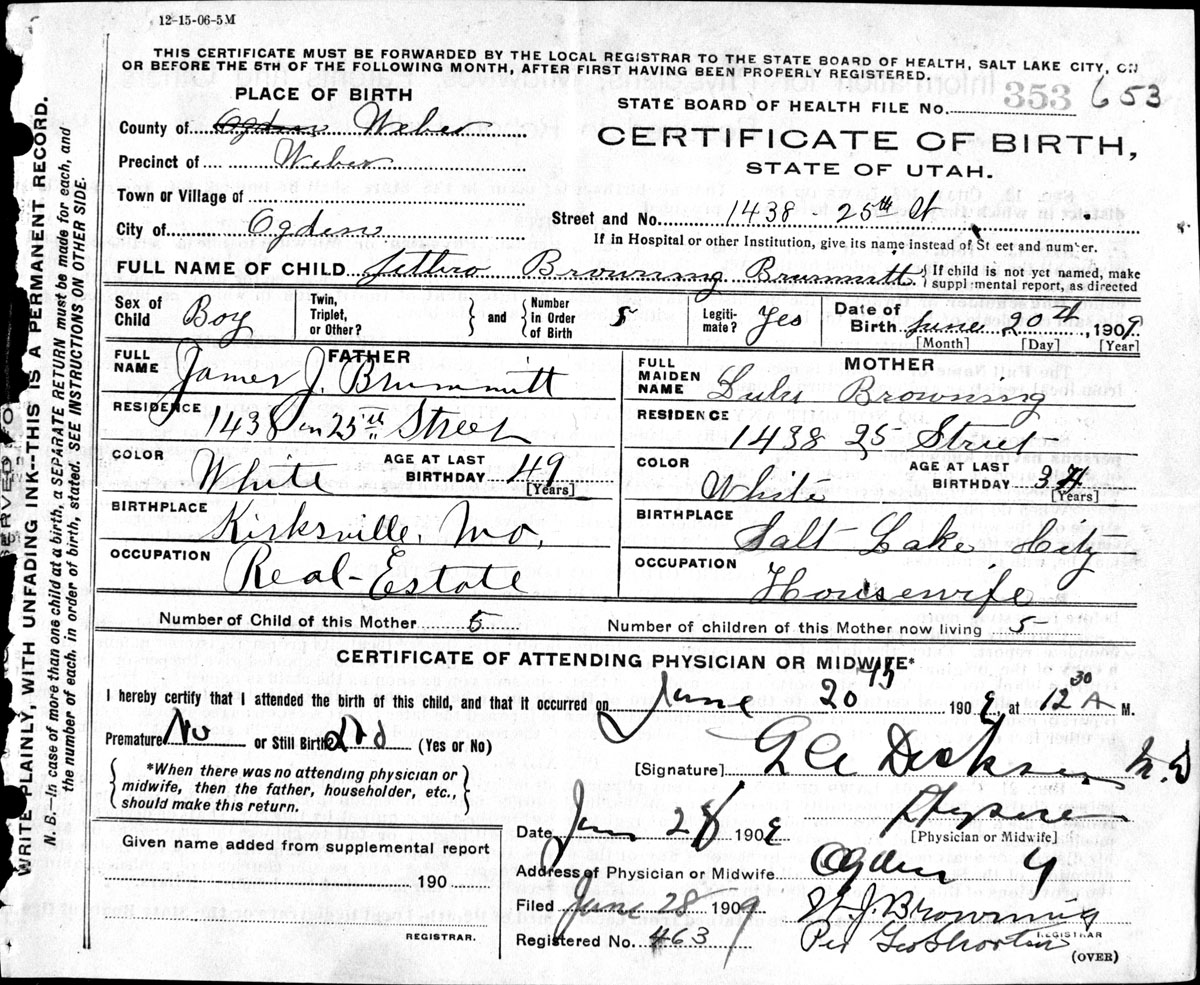 12-15-06-5M
THIS CERTIFICATE MUST BE FORWARDED BY THE LOCAL REGISTRAR TO THE STATE BOARD OF HEALTH, SALT LAKE CITY, ON
OR BEFORE THE 5TH OF THE FOLLOWING MONTH, AFTER FIRST HAVING BEEN PROPERLY REGISTERED.
PLACE OF BIRTH
STATE BOARD OF HEALTH FILE NO. 353 653
County of Ogden Weber
CERTIFICATE OF BIRTH,
Precinct of Weber
STATE OF UTAH.
Town or Village of
City of Ogden
Street and No. 1438 25th St
If in Hospital or other Institution, give its name instead of St eet and number.
FULL NAME OF CHILD Jethro Browning Brummitt { If child is not yet named, make
supplemental report, as directed
Sex of Child Boy Twin, Triplet, or Other? } and { Number In Order of Birth 5 Legiti-mate? Yes Date of Birth June 20th, 1909
[Month] [Day] [Year]
FATHER
FULL NAME James J. Brummitt
RESIDENCE 1438 25th Street
COLOR White AGE AT LAST BIRTHDAY 49 [Years]
BIRTHPLACE Kirksville, Mo.
OCCUPATION Real-Estate
MOTHER
FULL MAIDEN NAME Lulu Browning
RESIDENCE 1438 25 Street
COLOR White AGE AT LAST BIRTHDAY 34 [Years]
BIRTHPLACE Salt Lake City
OCCUPATION Housewife
Number of Child of this Mother 5 Number of children of this Mother now living 5
CERTIFICATE OF ATTENDING PHYSICIAN OR MIDWIFE*
I hereby certify that I attended the birth of this child, and that it occurred on June 20 1909, at 12 30 A M.
Premature No or Still Birth (Yes or No)
[Signature] M.D
{ *When there was no attending physician or
midwife, then the father, householder, etc.,
should make this return. }
Date 28 1909
[Physician or Midwife]
Given name added from supplemental report
190
REGISTRAR.
Address of Physician or Midwife Ogden
Filed June 28 1909 W. J. Browning
REGISTRAR
Registered No. 463 Per
(OVER)
WRITE PLAINLY, WITH UNFADING INK--THIS IS A PERMANENT RECORD.
N. B.--In case of more than one child at a birth, a SEPARATE RETURN must be made for each, and
the number of each, in order of birth, stated. SEE INSTRUCTIONS ON OTHER SIDE.